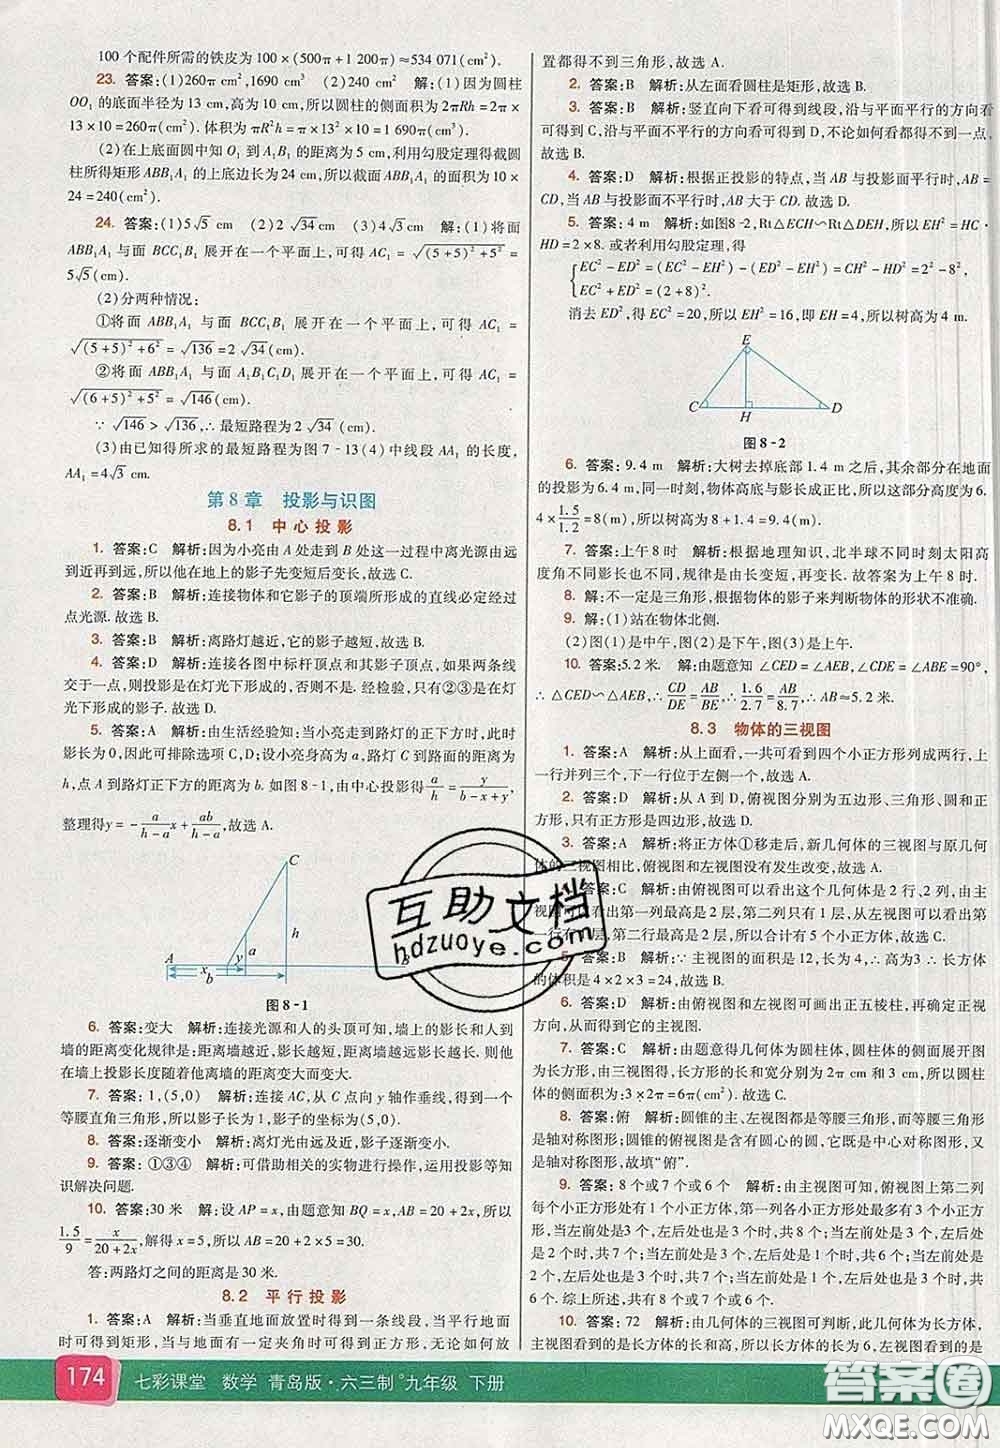 100 个配件所需的铁皮为 100×(500π+1 200π)≈534 071(cm²).
23. 答案:(1)260π cm²,1690 cm³ (2)240 cm² 解:(1)因为圆柱
OO₁ 的底面半径为 13 cm,高为 10 cm,所以圆柱的侧面积为 2πRh=2π×
13×10=260π(cm²).体积为 πR²h=π×13²×10=1 690π(cm³).
(2)在上底面圆中知 O₁ 到 A₁B₁ 的距离为 5 cm,利用勾股定理得截圆
柱所得矩形 ABB₁A₁ 的边长为 24 cm,所以截面 ABB₁A₁ 的面积为 10×
24=240(cm²).
24. 答案:(1)5√5 cm (2)2√34 cm (3)4√3 cm 解:(1)将面
ABB₁A₁ 与面 BCC₁B₁ 展开在一个平面上,可得 AC₁=√((5+5)²+5²)=
5√5(cm).
(2)分两种情况:
①将面 ABB₁A₁ 与面 BCC₁B₁ 展开在一个平面上,可得 AC₁
=√((5+5)²+6²)=√136=2√34(cm).
②将面 ABB₁A₁ 与面 A₁B₁C₁D₁ 展开在一个平面上,可得 AC₁=
√((6+5)²+5²)=√146(cm).
∵√146>√136,∴最短路程为 2√34(cm).
(3)由已知得所求的最短路程为图 7-13(4)中线段 AA₁ 的长度,
AA₁=4√3(cm).
第 8 章 投影与识图
8.1 中心投影
1. 答案:C 解析:因为小亮由 A 处走到 B 处这一过程中离光源由远
到近再到远,所以他在地上的影子先变短后变长,故选 C.
2. 答案:B 解析:连接物体和它影子的顶端所形成的直线必定经过
点光源.故选 B.
3. 答案:B 解析:离路灯越近,它的影子越短,故选 B.
4. 答案:D 解析:连接各图中标杆顶点和其影子顶点,如果两条线
交于一点,则投影是在灯光下形成的,否则不是.经检验,只有②③是在灯
光下形成的影子.故选 D.
5. 答案:A 解析:由生活经验知:当小亮走到路灯的正下方时,此时
影长为 0,因此可排除选项 C、D;设小亮身高为 a,路灯 C 到路面的距离为
h,点 A 到路灯正下方的距离为 b.如图 8-1,由中心投影得 a/h=y/(b-x+y),
整理得 y=-a/(h-a)x+ab/(h-a),故选 A.
C
h
a
A
y
x
b
图 8-1
6. 答案:变大 解析:连接光源和人的头顶可知,墙上的影长和人到
墙的距离变化规律是:距离墙越近,影长越短,距离墙越远,影长越长.则他
在墙上投影长度随着他离墙的距离变大而变大.
7. 答案:1,(5,0) 解析:连接 AC,从 C 点向 y 轴作垂线,可得一个
等腰直角三角形,所以影子长为 1,影子的坐标为(5,0).
8. 答案:逐渐变小 解析:离灯光由远及近,影子逐渐变小.
9. 答案:①③④ 解析:可借助相关的实物进行操作,运用投影等知
识解决问题.
10. 答案:30 米 解:设 AP=x,由题意知 BQ=x,AB=20+2x,所以
1.5/9=x/(20+2x),解得 x=5,所以 AB=20+2×5=30.
答:两路灯之间的距离是 30 米.
8.2 平行投影
1. 答案:A 解析:当垂直地面放置时得到一条线段,平行于地面
时可得到矩形,当与地面有一定夹角时可得到正方形,无论如何放
置都得不到三角形,故选 A.
2. 答案:B 解析:从左面看圆柱是矩形,故选 B.
3. 答案:B 解析:竖直向下看可得到线段,沿与平面平行的方向看
可得到 C,沿与平面不平行的方向看可得到 D,不论如何看都得不到一点.
故选 B.
4. 答案:D 解析:根据正投影的特点,当 AB 与投影面平行时,AB=
CD,当 AB 与投影面不平行时,AB 大于 CD.故选 D.
5. 答案:4 m 解析:如图8-2,Rt△ECH∽Rt△DEH,所以 EH²=HC·
HD=2×8.或者利用勾股定理,得
EC²-ED²=(EC²-EH²)-(ED²-EH²)=CH²-HD²=2²-8²,
EC²+ED²=(2+8)².
消去 ED²,得 EC²=20,所以 EH²=16,即 EH=4,所以树高为 4 m.
E
C H D
图 8-2
6. 答案:9.4 m 解析:大树去掉底部 1.4 m 之后,其余部分在地面
的投影为 6.4 m,同一时刻,物体高与影长成正比,所以这部分的高为 6.
4×1.5/1.2=8(m),所以树高为 8+1.4=9.4(m).
7. 答案:上午 8 时 解析:根据地理知识,北半球不同时刻太阳高
度角不同影长也不同,规律是由长变短,再变长.故答案为上午 8 时.
8. 解:不一定是三角形.根据物体的影子来判断物体的形状不准确.
9. 解:(1)站在物体北侧.
(2)图(1)是中午,图(2)是下午,图(3)是上午.
10. 答案:5.2 米 解:由题意知 ∠CED=∠AEB,∠CDE=∠ABE=90°,
∴△CED∽△AEB,∴CD/DE=AB/BE,∴1.6/2.7=AB/8.7,∴AB≈5.2 米.
8.3 物体的三视图
1. 答案:A 解析:从上面看,一共可看到四个小正方形列成两行,上
一行并列三个,下一行位于左侧一个,故选 A.
2. 答案:D 解析:从 A 到 D,俯视图分别为五边形、三角形、圆和正
方形,只有正方形是四边形,故选 D.
3. 答案:A 解析:将正方体①移走后,新几何体的三视图与原几何
体的三视图相比,俯视图和左视图没有发生改变,故选 A.
答案:C 解析:由俯视图可以看出这个几何体是 2 行、2 列,由主
视图可以看出第一列最高是 2 层,第二列只有 1 层,从左视图可以看出第
一行只有 层,第二行最高是 2 层,所以合计有 5 个小正方体,故选 C.
5. 答案:B 解析:∵主视图的面积是 12,长为 4,∴高为 3,∴长方体
的体积是 4×2×3=24,故选 B.
6. 答案:D 解析:由俯视图和左视图可画出正五棱柱,再确定正视
方向,得到它的主视图.
7. 答案:C 解析:由题意得几何体为圆柱体,圆柱体的侧面展开图
为长方形,由三视图可得,长方形的长和宽分别为 2π cm 和 3 cm,所以它
的侧面积为:2π×3=6π(cm²),故选 C.
8. 答案:俯 解析:圆锥的主、左视图都是等腰三角形,而等腰三角形
是轴对称图形;圆锥的俯视图是含有圆心的圆,它既是中心对称图形,又
是轴对称图形,故填“俯”.
9. 答案:8 个或 7 个或 6 个 解析:由主视图可知,俯视图上第二列
每个小正方形所对应的小正方体均为 1 个,第一列小正方体最多有 3 个,
当左前处是 3 个,左后处也是 3 个时,共 8 个;当左前处是 3 个,左后处是
2 个时,共 7 个;当左前处是 3 个,左后处是 1 个时,共 6 个;当左前处是 1
个,左后处是 3 个时,共 6 个;当左前处是 2 个,左后处也是 3 个时,共 7
个,当左前处也是 3 个,左后处是 2 个时,共 7 个;当左前处也是 3 个时,共
6 个.综上所述,共有 8 个或 7 个或 6 个.
10. 答案:72 解析:由该物体的三视图可判断,此几何体为长方体,
主视图看到的是长方体的长和高,所以长方体的长为 6,左视图看到的是
互助文档
hdzuoye.com
174 七彩课堂 数学 青岛版·六三制 九年级 下册
答案圈
MXQE.COM